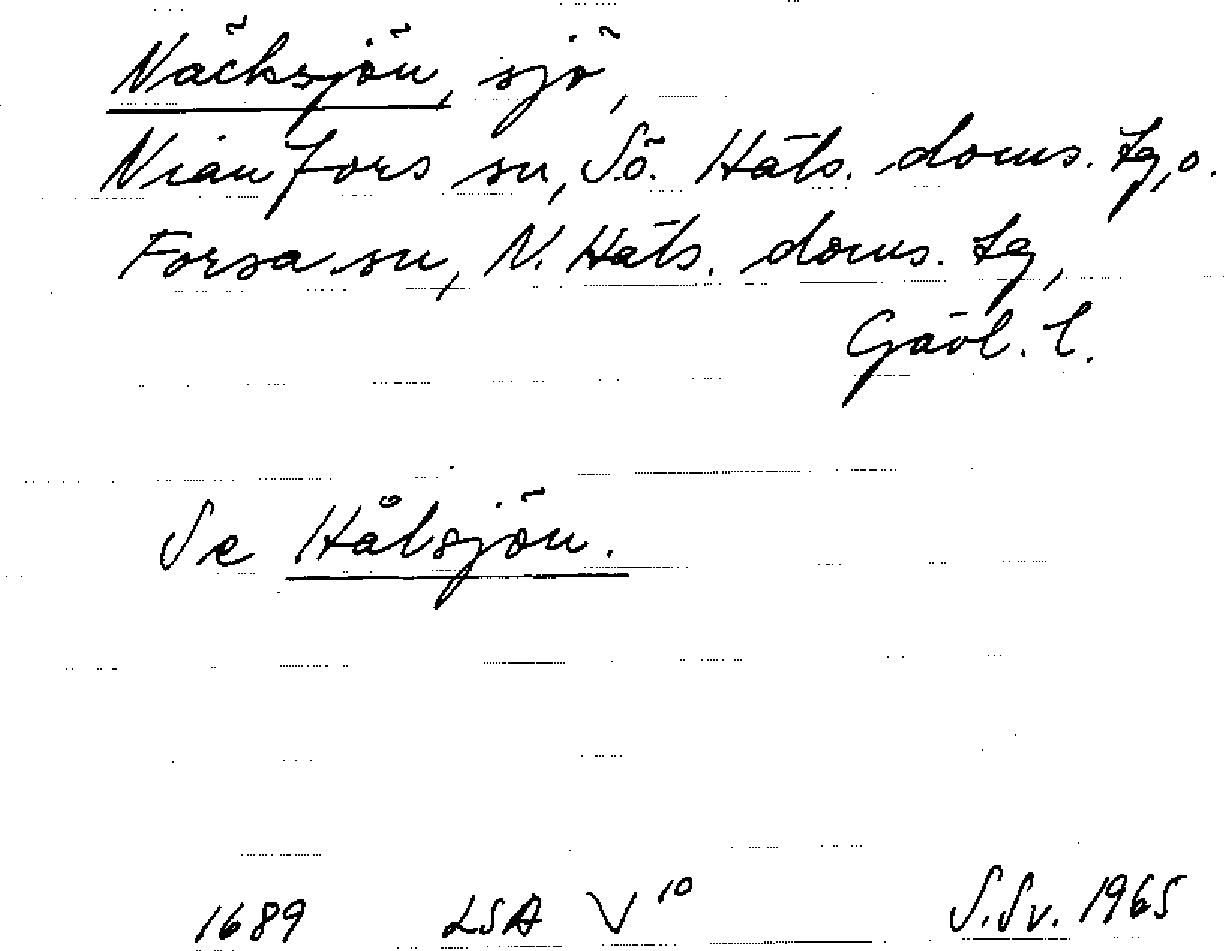 Näcksjön, sjö,
Nianfors sn, Sö. Häls. doms. tg, o.
Forsa sn, N. Häls. doms. tg,
Gävl. l.
Se Hålsjön.
1689 LSA V¹⁰ S.Sv. 1965